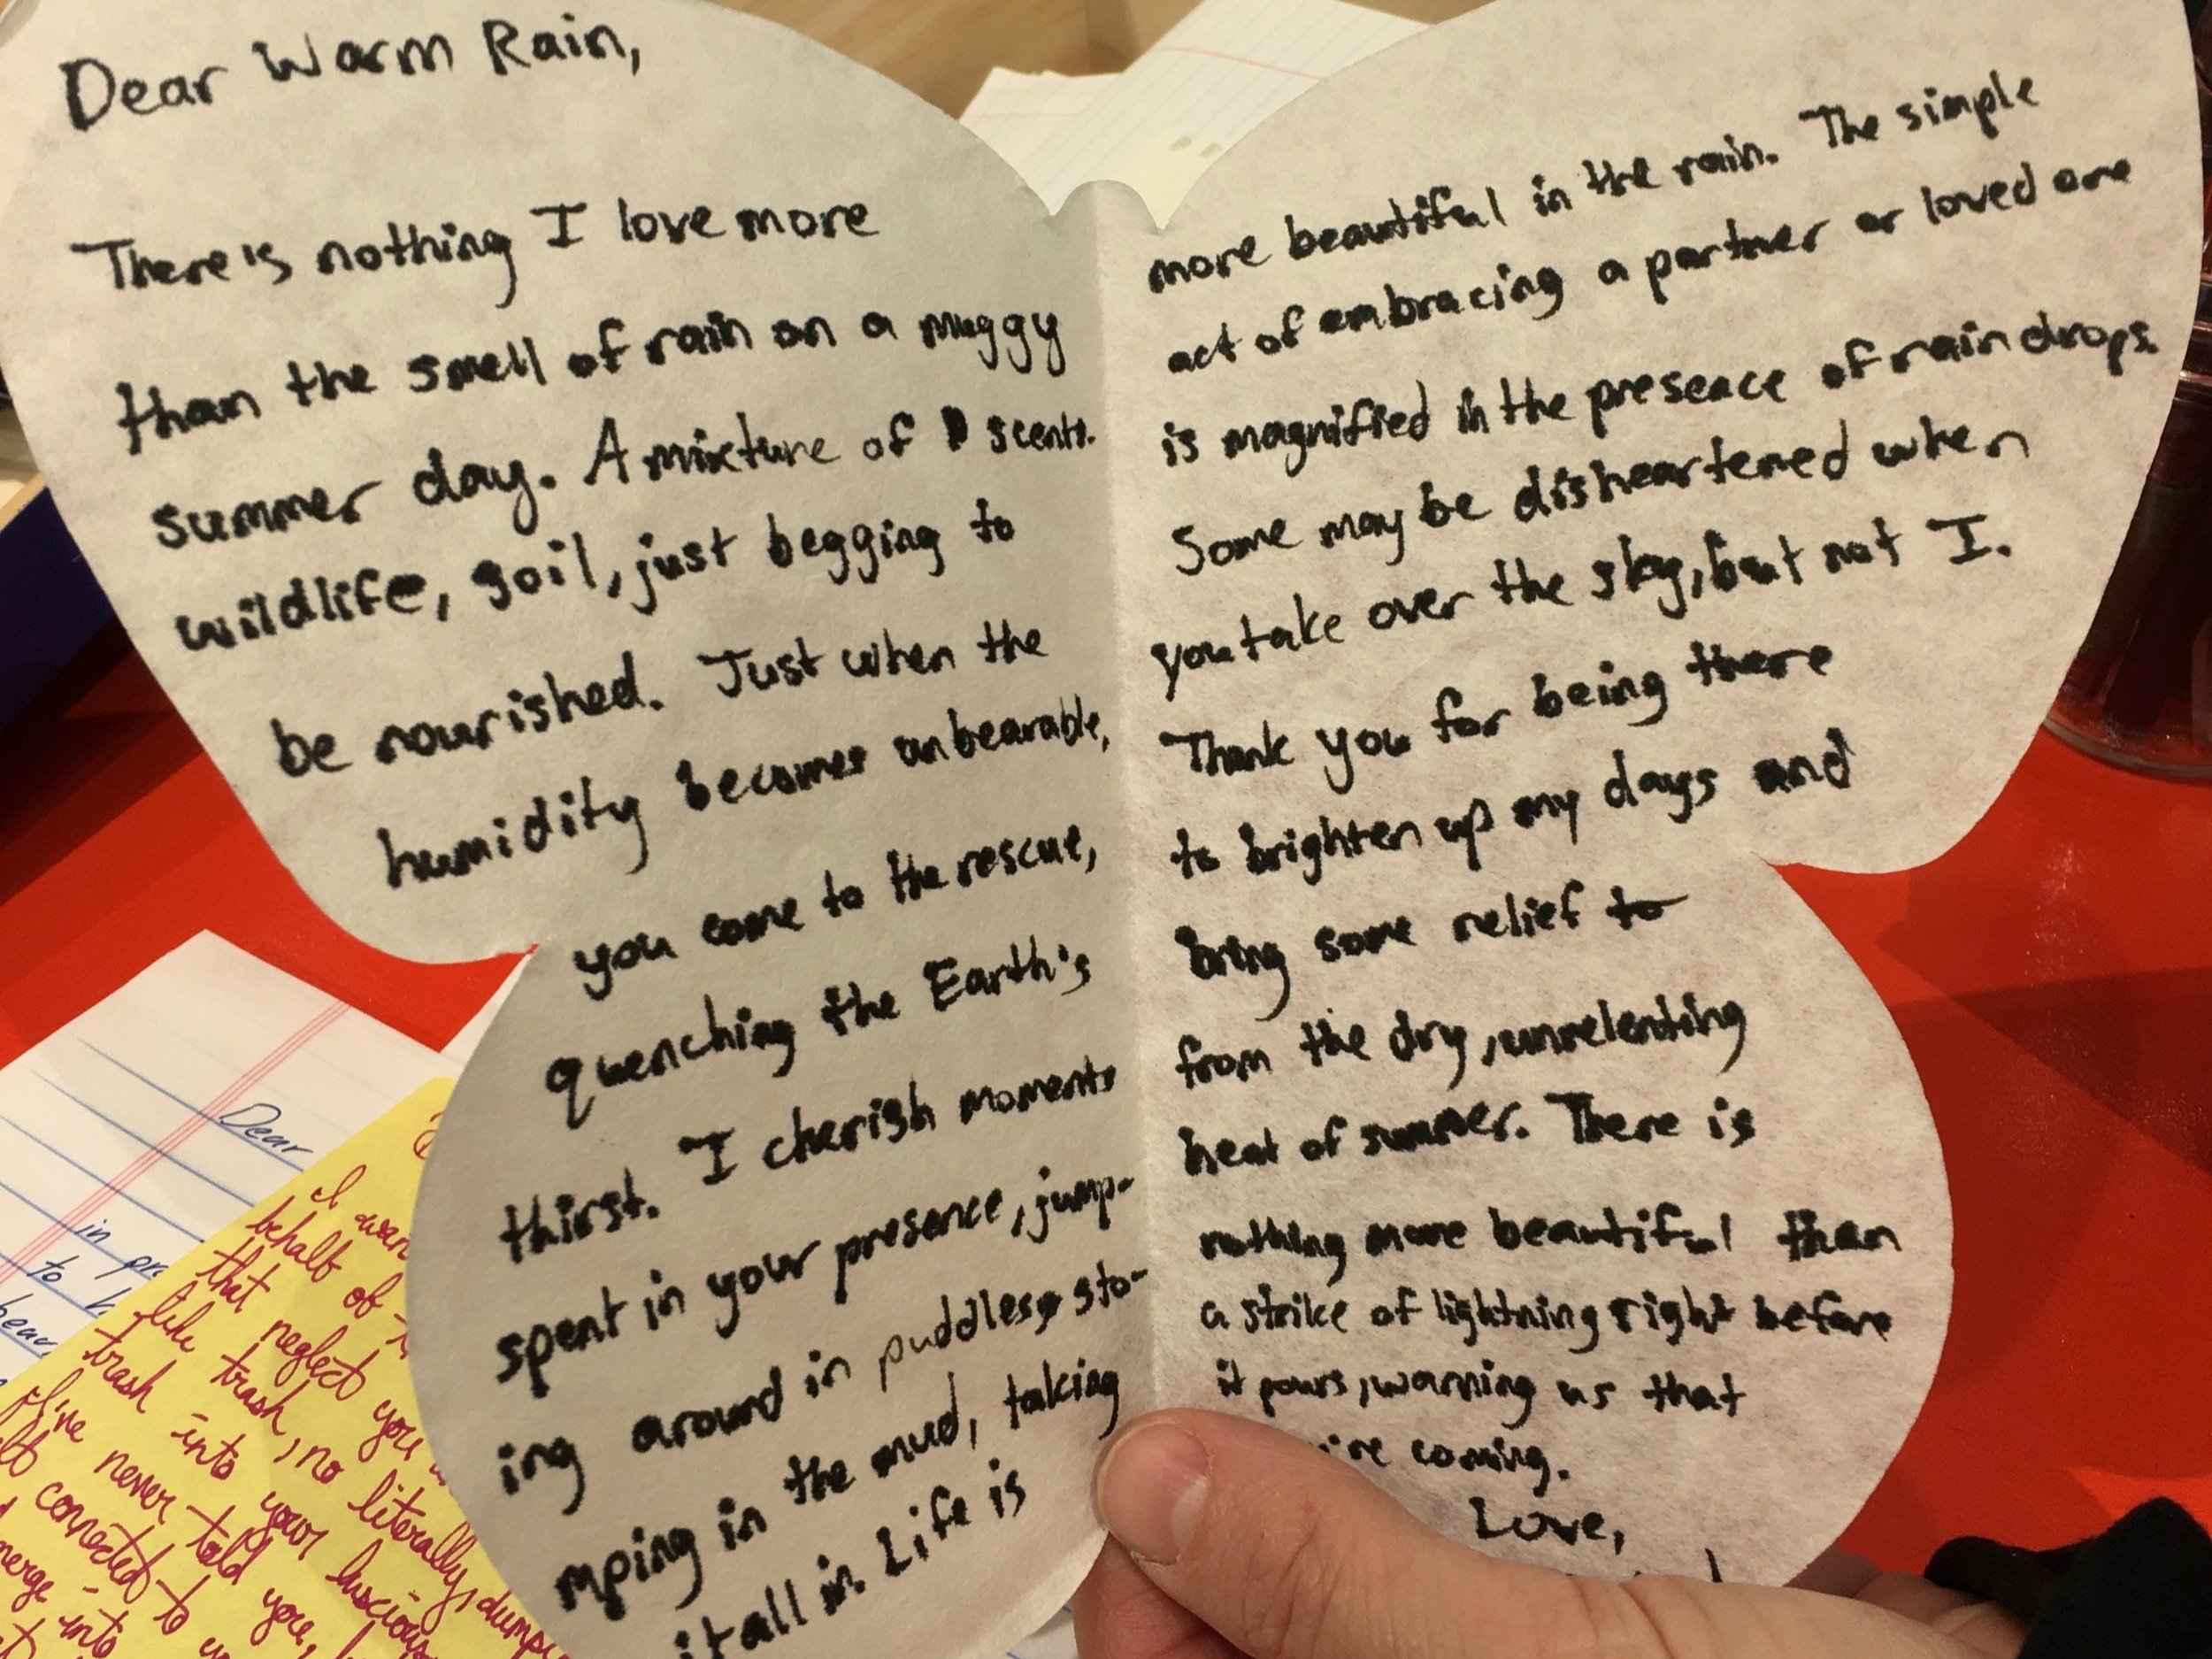 Dear Warm Rain,
There's nothing I love more
than the smell of rain on a muggy
summer day. A mixture of scents.
wildlife, soil, just begging to
be nourished. Just when the
humidity becomes unbearable,
you come to the rescue,
quenching the Earth's
thirst. I cherish moments
spent in your presence, jump-
ing around in puddles, sto-
mping in the mud, taking
it all in. Life is
more beautiful in the rain. The simple
act of embracing a partner or loved one
is magnified in the presence of raindrops.
Some may be disheartened when
you take over the sky, but not I.
Thank you for being there
to brighten up my days and
bring some relief to
from the dry, unrelenting
heat of summer. There is
nothing more beautiful than
a strike of lightning right before
it pours, warning us that
coming.
Love,
Dear
in
to
I
behalf of
that neglect you
like trash, no literally, dump
trash into your luscious
I've never told you,
connected to
into